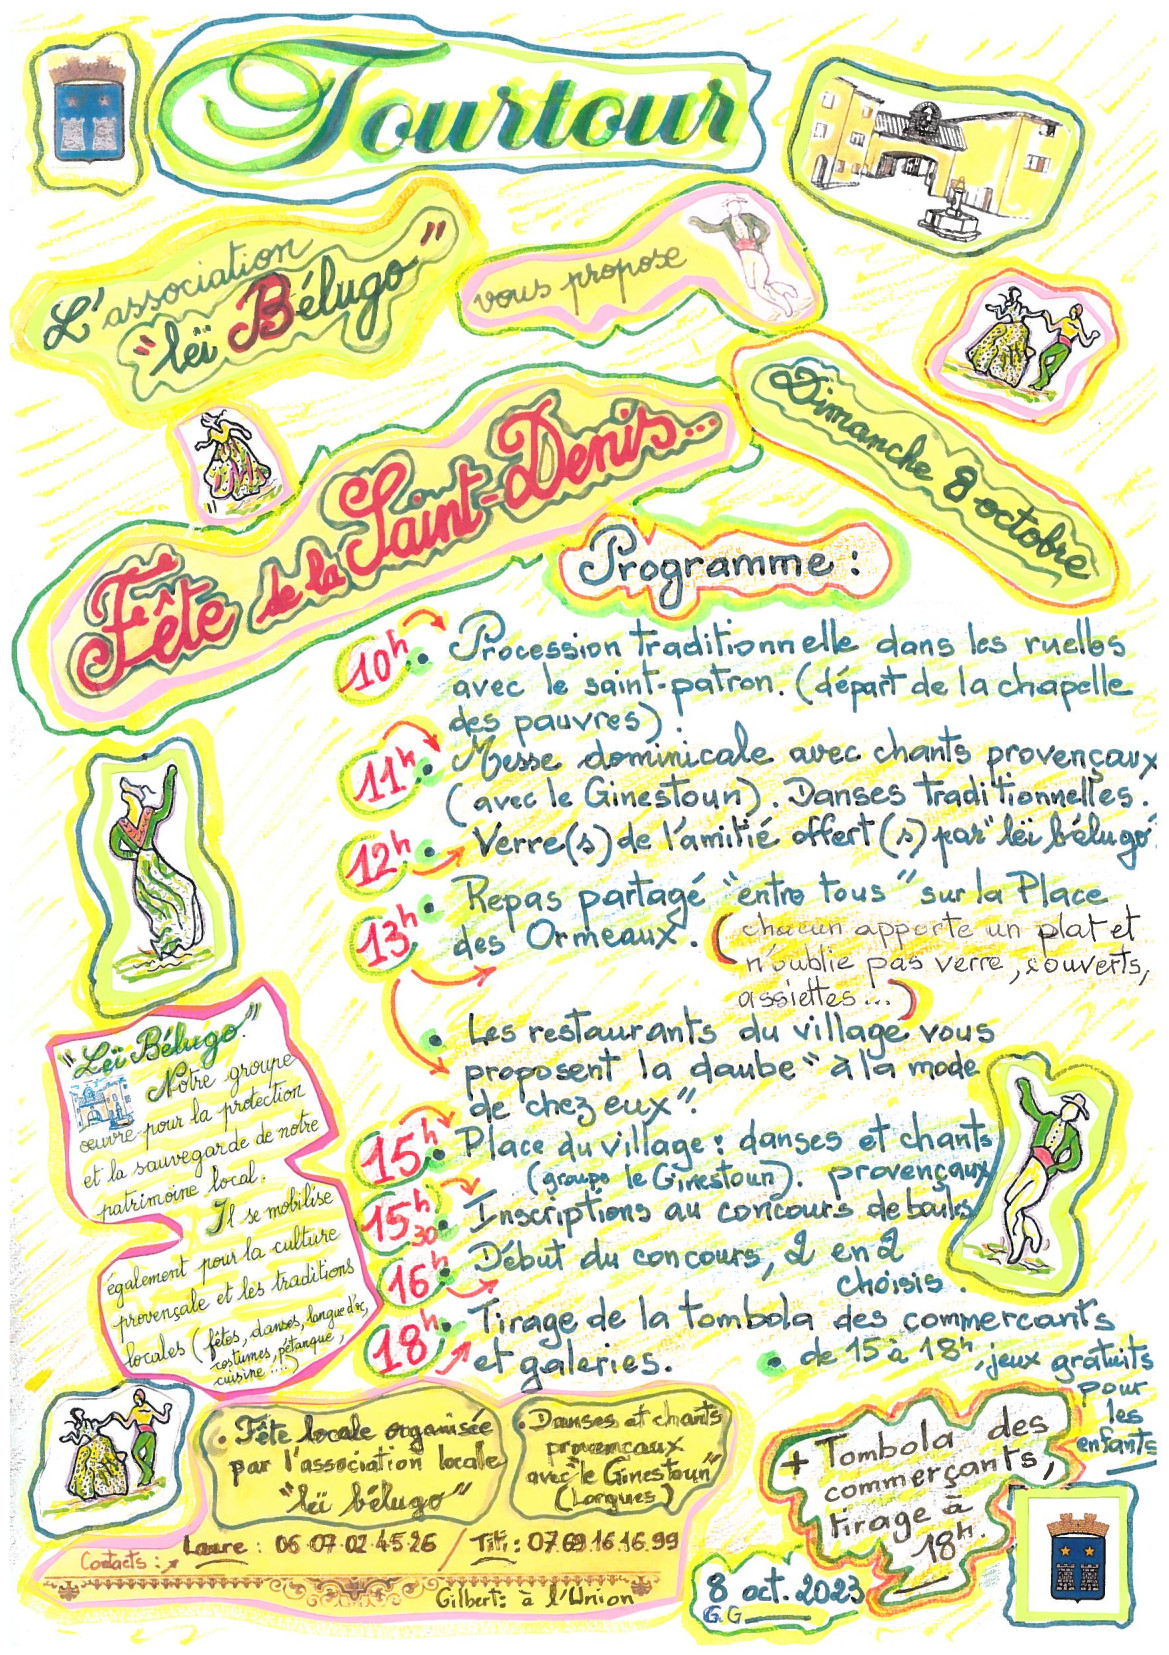 Tourtour
L'association
"leï Bélugo"
vous propose
Dimanche 8 octobre
Fête de la Saint-Denis...
Programme :
10h • Procession traditionnelle dans les ruelles
avec le saint-patron. (départ de la chapelle
des pauvres).
11h • Messe dominicale avec chants provençaux
(avec le Ginestoun). Danses traditionnelles.
12h • Verre(s) de l'amitié offert(s) par "leï bélugo".
13h • Repas partagé "entre tous" sur la Place
des Ormeaux. (chacun apporte un plat et
n'oublie pas verre, couverts,
assiettes...)
• Les restaurants du village vous
proposent la daube "à la mode
de chez eux".
15h • Place du village : danses et chants
(groupe le Ginestoun). provençaux
15h30 • Inscriptions au concours de boules
16h • Début du concours, 2 en 2
choisis.
18h • Tirage de la tombola des commercants
et galeries.
• de 15 à 18h, jeux gratuits
pour
les
enfants
"Leï Bélugo"
Notre groupe
œuvre pour la protection
et la sauvegarde de notre
patrimoine local.
Il se mobilise
également pour la culture
provençale et les traditions
locales (fêtes, danses, langue d'oc,
costumes, pétanque,
cuisine ....)
• Fête locale organisée
par l'association locale
"leï bélugo"
• Danses et chants
provencaux
avec "le Ginestoun"
(Lorgues)
Contacts :
Laure : 06.07.02.45.26 / Titi : 07.69.16.16.99
Gilbert : à l'Union
+ Tombola des
commerçants,
tirage à
18h.
8 oct. 2023
G.G